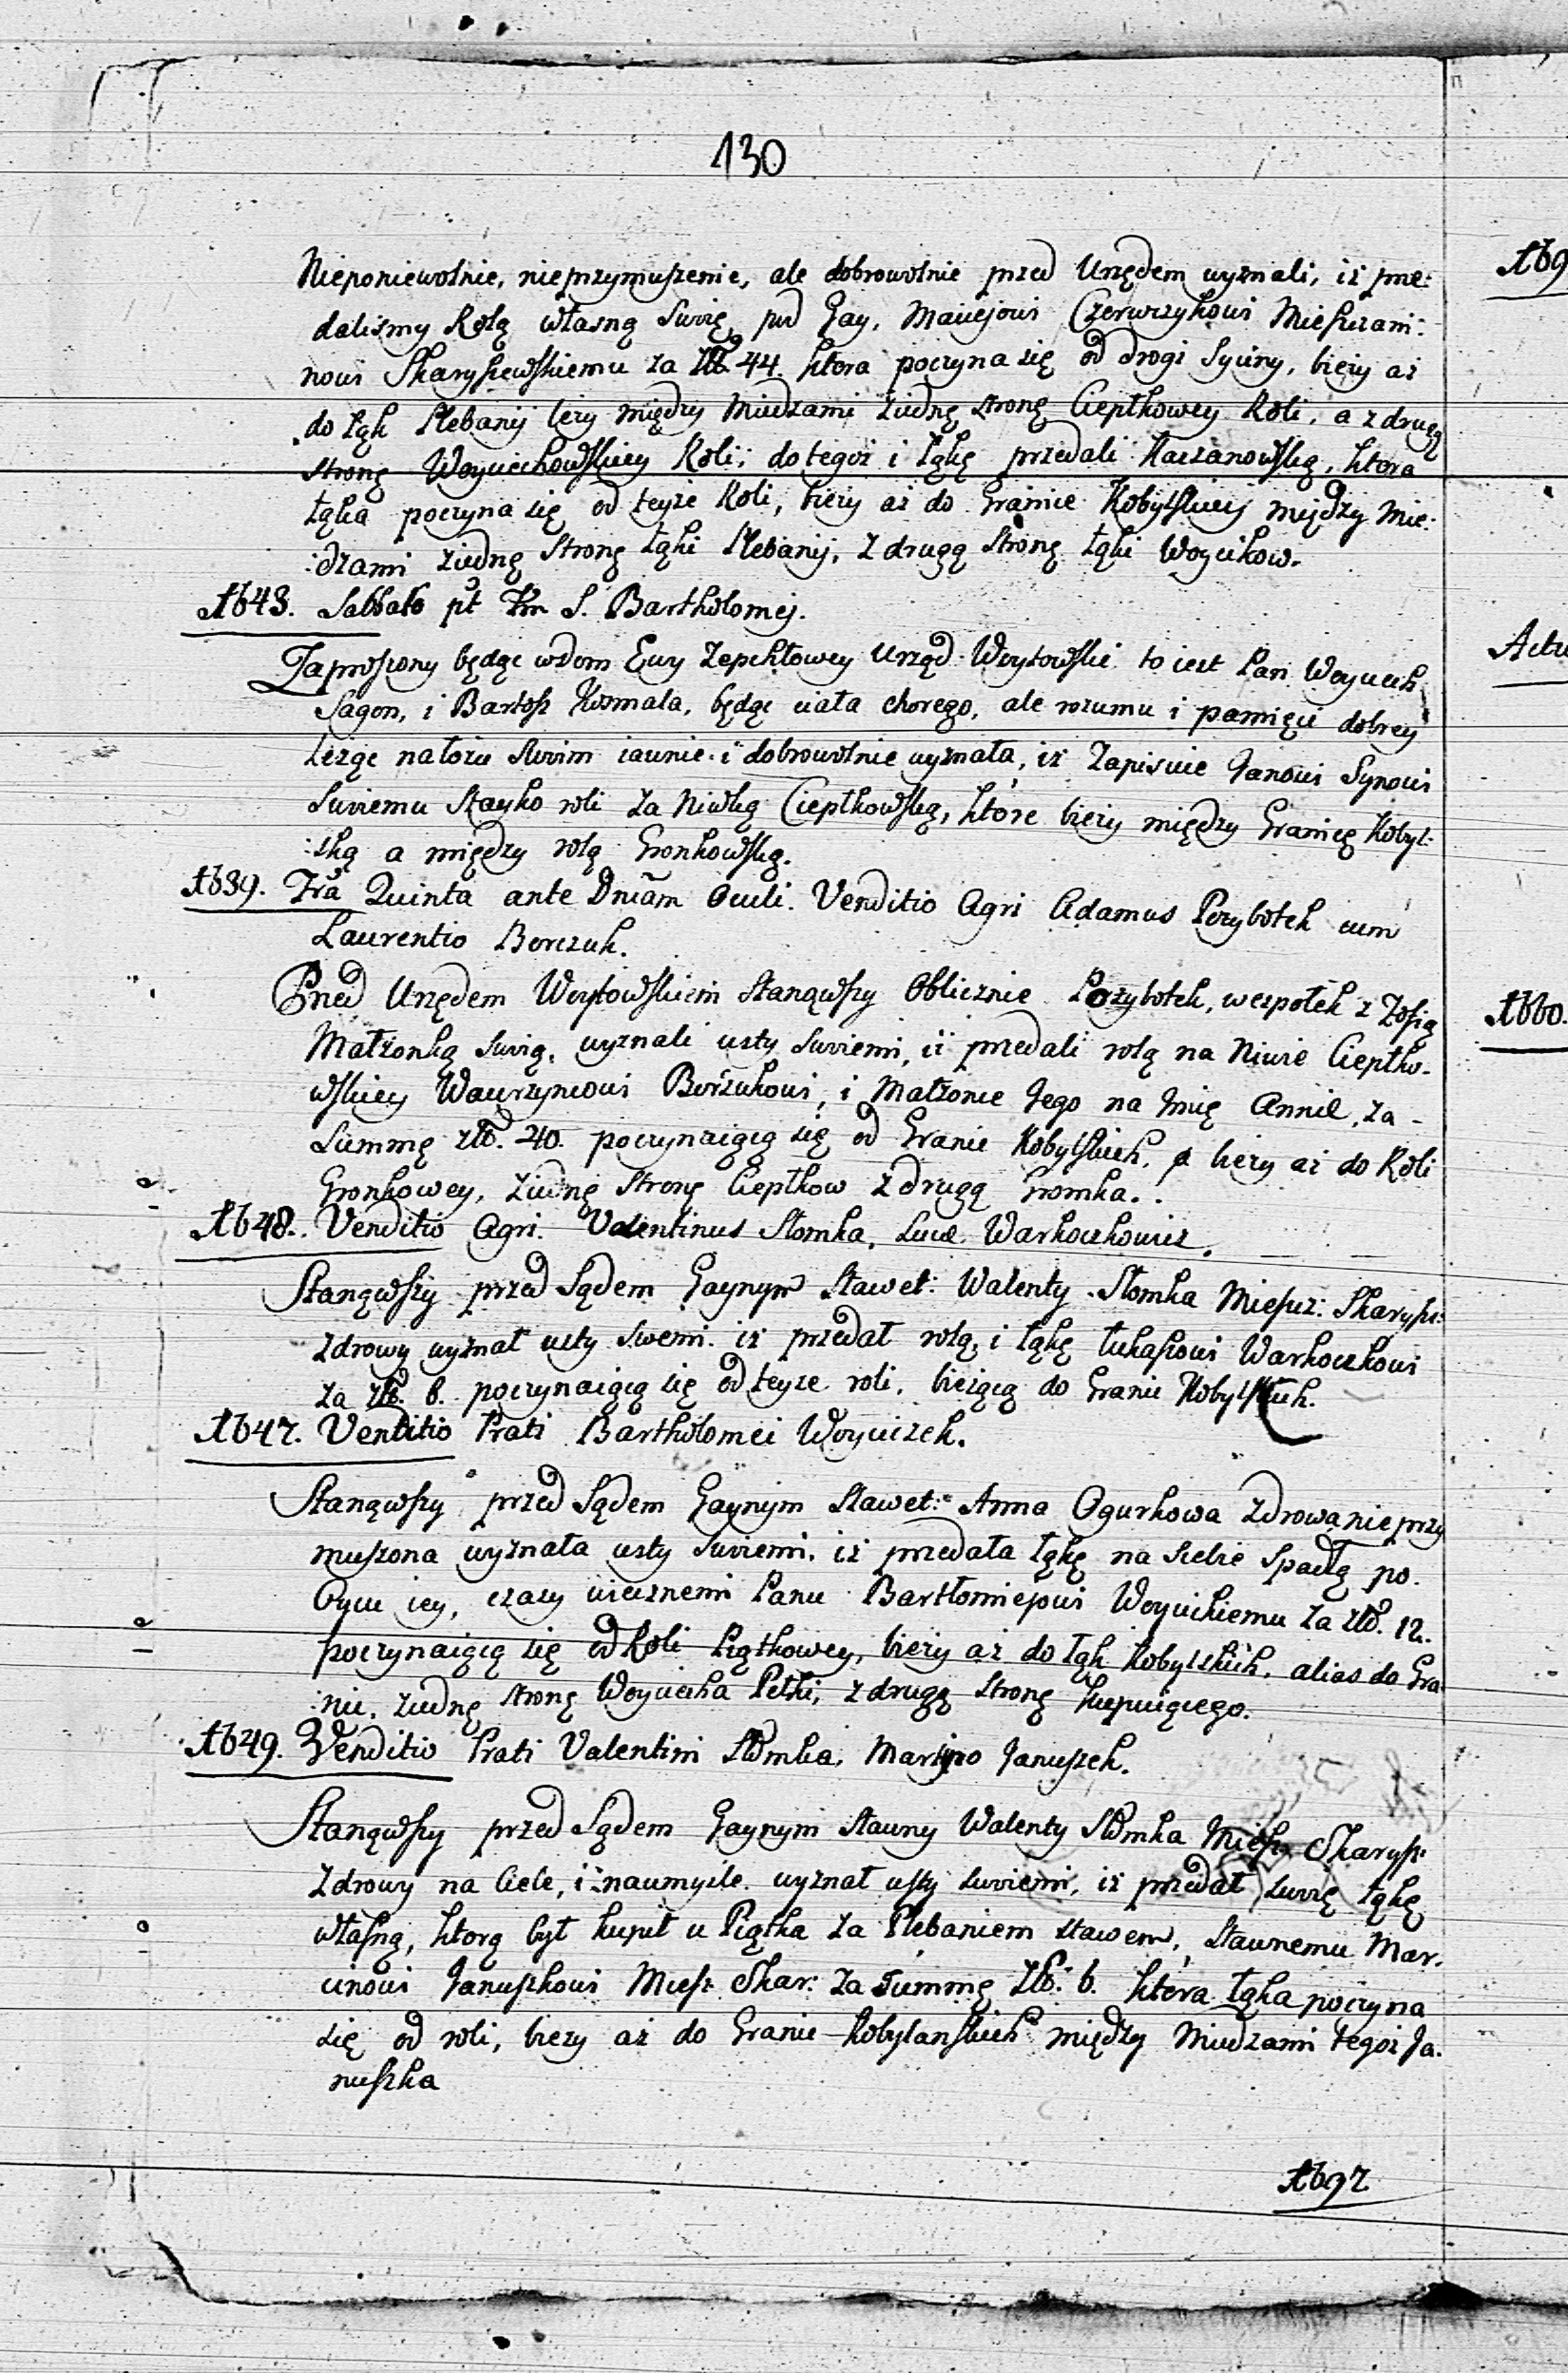 130
Nieponiewolnie, nieprzymuszenie, ale dobrowolnie przed Urzędem wyznali, iż prze:
daliśmy Rolą własną Swoię, pod Gay, Maciejowi Czerwczykowi Mieszczani:
nowi Skaryszewskiemu za Złł 44. ktora poczyna się od drogi Syciny, bieży aż
do Łąk Plebanij leży między Miedzami ziedną stronę Ciepłkowey Roli, a z drugą
stronę Woyciechowskiey Roli; do tegoż i Łąkę przedali Kaczanowską, ktora
Łąka poczyna się od teyże Roli, bieży aż do Granice Kobylskiey między Mie:
:dzami ziedną Stronę Łąki Plebanij, z drugą Stronę Łąki Woycikow.
1643. Sabbato pt Fm S. Bartholomej.
Zaproszony będąc wdom Ewy Zepchłowey Urząd Woytowski to iest Pan Woyciech
Sagon, i Bartosz Kosmala, będąc ciała chorego, ale rozumu i pamięci dobrey
Leżąc nałożu Swoim iawnie i dobrowolnie wyznała, iż Zapisuie Janowi Synowi
Swoiemu Stayko roli za Niwką Ciepłkowską, ktore bieży między Granicę Kobyl:
:ską a między rolą Gronkowską.
1639. Fra Quinta ante Dnicam Oculi. Venditio Agri Adamus Pozybołek cum
Laurentio Borczuk.
Przed Urzędem Woytowskiem Stanąwszy Oblicznie Pozybołek, wespołek z Zofią
Małżonką Swoią, wyznali usty Swoiemi, iż przedali rolą na Niwie Ciepłko-
wskiey Wawrzyncowi Borżukowi, i Małżonce Jego na Jmię Annie, za -
Summę złł. 40. poczynaiącą się od Granic Kobylskich, a bieży aż do Roli
Gronkowey, ziedną Stronę Ciepłkow z drugą Gromka.
1648. Venditio Agri. Valentinus Słomka, Lucæ Warkoczkowicz.
Stanąwszy przed Sądem Gaynym Sławet: Walenty Słomka Mieszcz: Skarysz:
zdrowy wyznał usty swemi iż przedał rolą i Łąkę Łukaszowi Warkoczkowi
za złł. 6. poczynaiącą się od teyże roli, bieżącą do Granic Kobylskich.
1647. Venditio Prati Bartholomei Woyciczek.
Stanąwszy przed Sądem Gaynym Sławet: Anna Ogurkowa Zdrowa nieprzy
muszona wyznała usty Swoiemi, iż przedała Łąkę na Siebie Spadłą po.
Oycu iey, czasy wiecznemi Panu Bartłomiejowi Woycickiemu za złł. 12.
poczynaiącą się od Roli Piątkowey, bieży aż do Łąk Kobylskich, alias do Gra
:nic, ziedną stronę Woyciecha Petki, z drugą stronę Kupuiącego.
1649. Venditio Prati Valentini Słomka, Martino Januszek.
Stanąwszy przed Sądem Gaynym Sławny Walenty Słomka Miesz. Skarysz:
zdrowy na Ciele, i naumyśle wyznał usty swoiemi, iż przedał swoię Łąkę
własną, ktorą był kupił u Piątka za Plebaniem stawem, Sławnemu Mar.
cinowi Januszkowi Miesz. Skar: za Summę Złł. 6. ktora Łąka poczyna
się od roli, bieży aż do Granic Kobylanskich między Miedzami tegoż Ja.
nuszka
1697
169
Actu
1660.